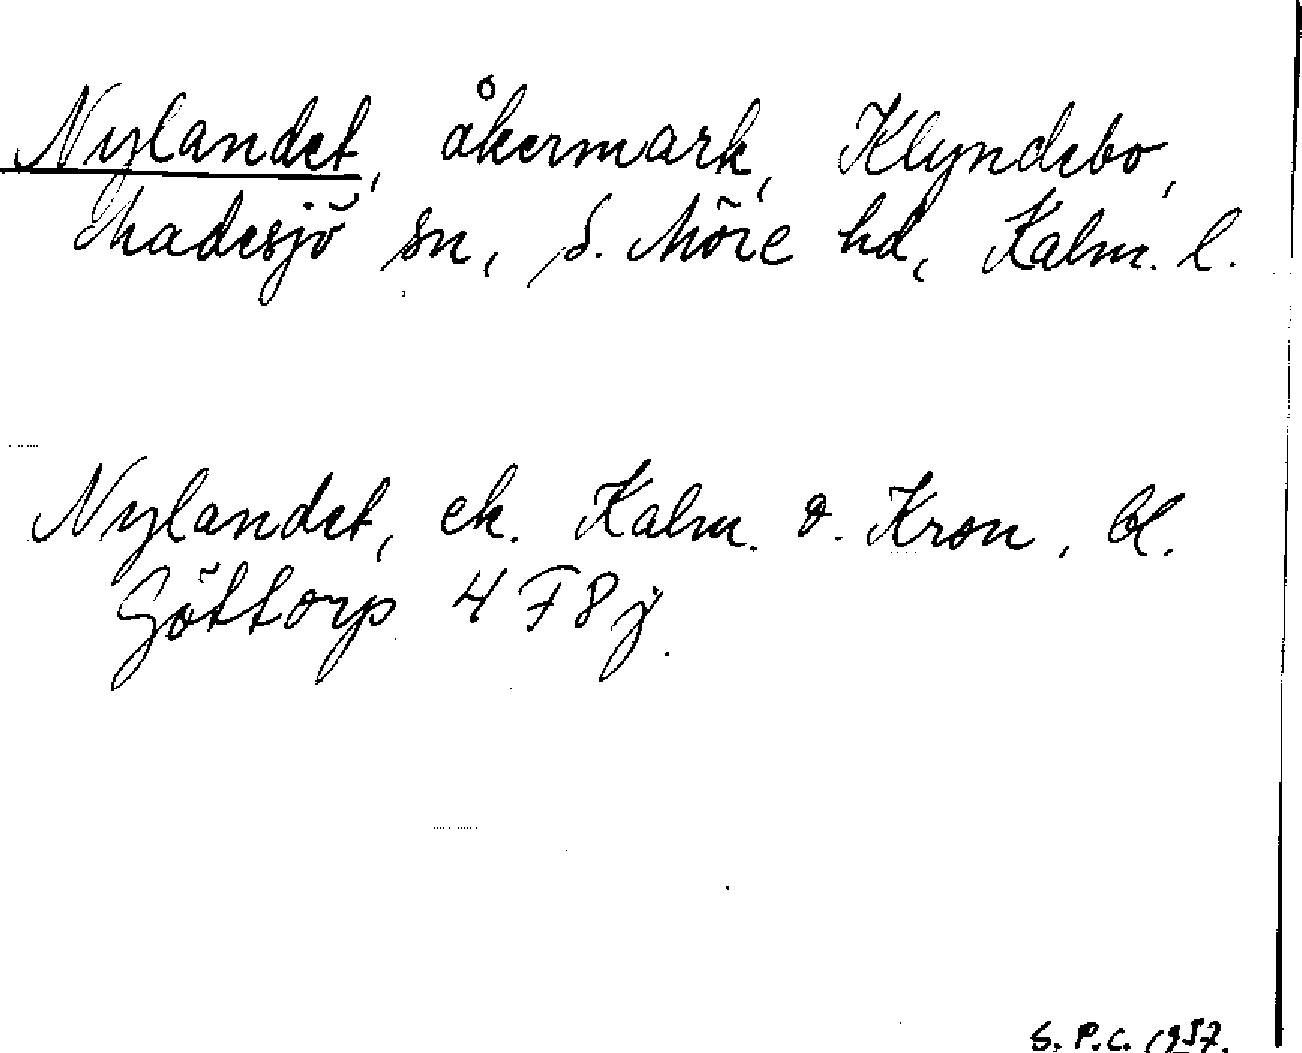 Nylandet, åkermark, Klyndebo,
Madesjö sn, S. Möre hd, Kalm. l.
Nylandet, ek. Kalm. o. Kron., bl.
Göttorp 4 F 8 j.
S. P. C. 1957.